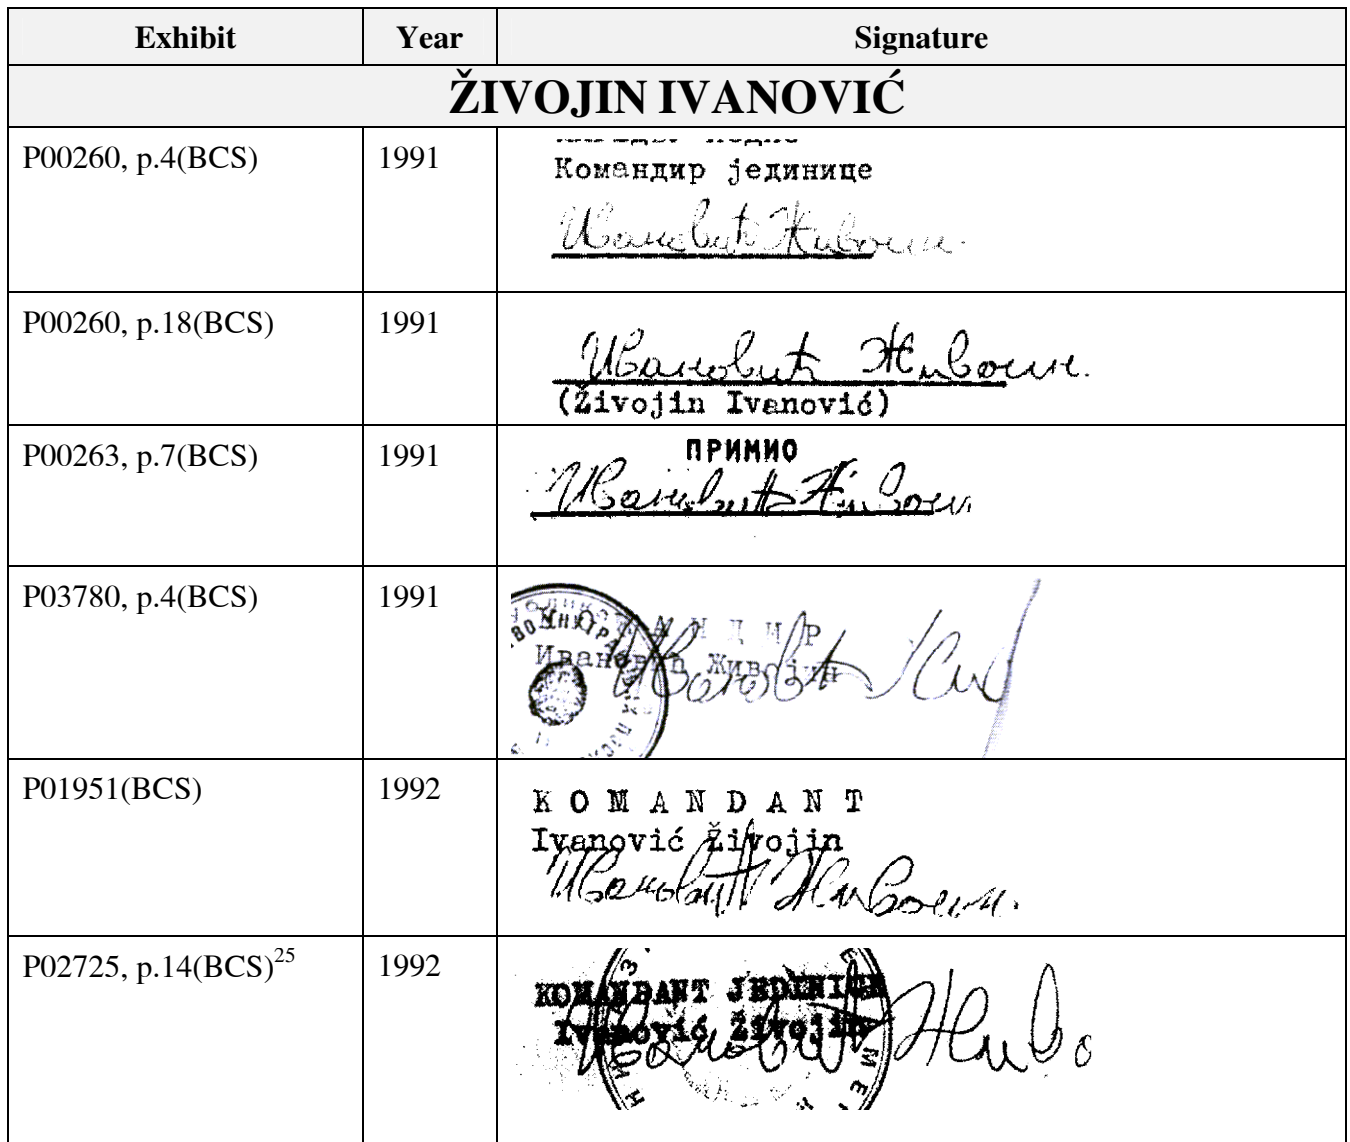 Exhibit Year Signature
ŽIVOJIN IVANOVIĆ
P00260, p.4(BCS) 1991
Командир јединице
Ивановић Живојин.
P00260, p.18(BCS) 1991
Ивановић Живојин.
(Živojin Ivanović)
P00263, p.7(BCS) 1991
ПРИМИО
Ивановић
P03780, p.4(BCS) 1991
Ивановић Живојин
Ивановић
P01951(BCS) 1992
K O M A N D A N T
Ivanović Živojin
Ивановић Живојин.
P02725, p.14(BCS)25 1992
KOMANDANT JEDINICE
Ivanović Živojin
Ивановић Живо